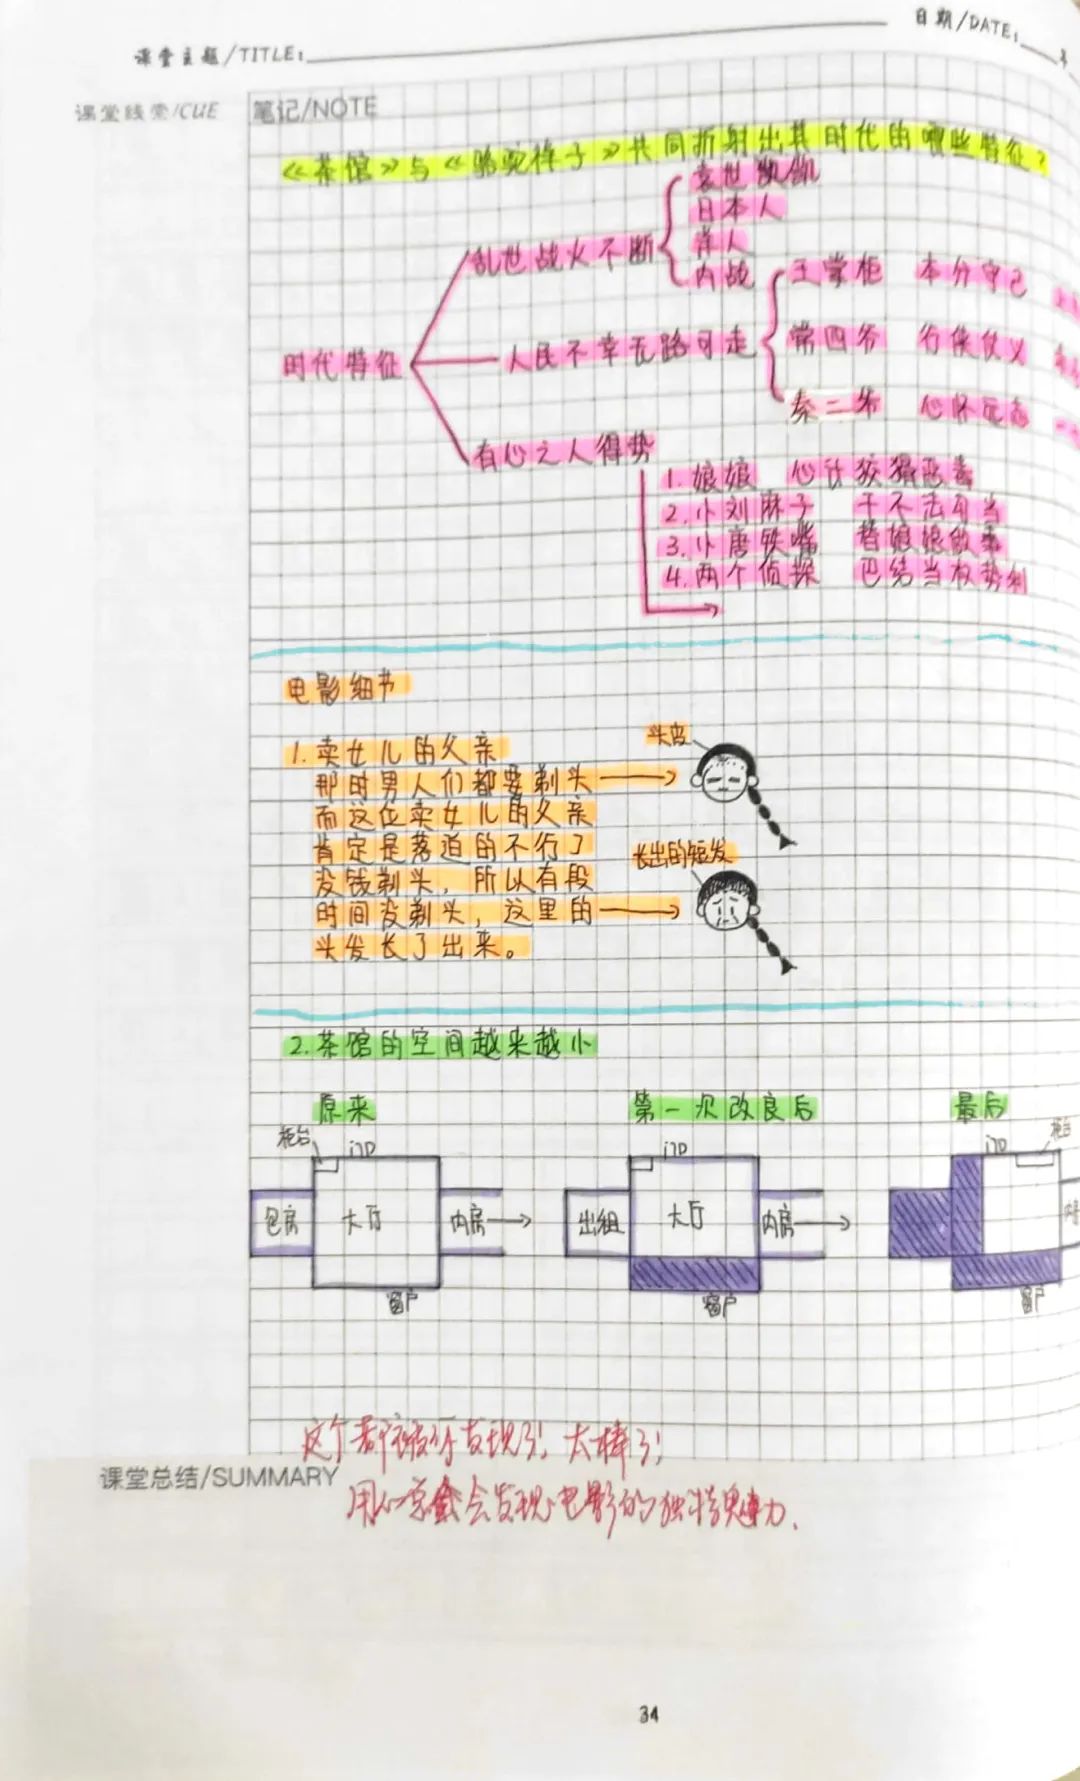 日期/DATE:
课堂主题/TITLE:
课堂线索/CUE
笔记/NOTE
《茶馆》与《骆驼祥子》共同折射出其时代的哪些特征?
时代特征
乱世战火不断
袁世凯
日本人
内战
人民不幸无路可走
王掌柜 本分守己
常四爷 行侠仗义
秦二爷 心怀远志
有心之人得势
1.娘娘 心计狡猾恶毒
2.小刘麻子 干不法勾当
3.小唐铁嘴 替娘娘做事
4.两个侦探 巴结当权势利
电影细节
1.卖女儿的父亲
那时男人们都要剃头
而这位卖女儿的父亲
肯定是落迫的不行了
没钱剃头,所以有段
时间没剃头,这里的
头发长了出来。
头皮
长出的短发
2.茶馆的空间越来越小
原来
柜台
门口
包房
大厅
内房
窗户
第一次改良后
门口
出组
大厅
内房
窗户
最后
门口
柜台
窗户
这个都被你发现了!太棒了!
课堂总结/SUMMARY
会发现电影的独特魅力.
34